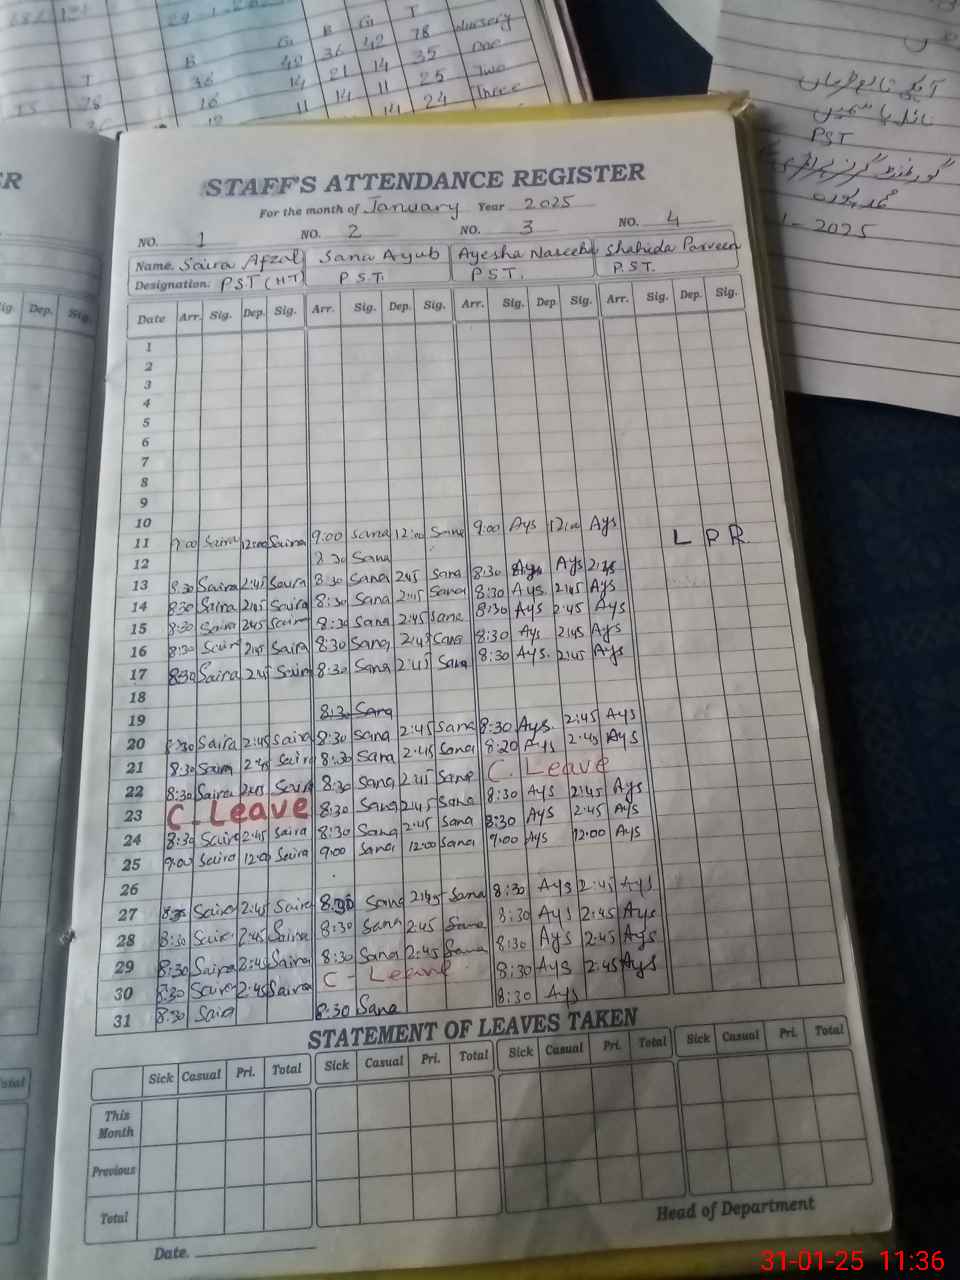 B G T
G 36 42 78 Nursery
T B 42 21 14 35 One
78 36 14 14 11 25 Two
16 11 14 24 Three
آیکے نام
نائلہ یاسمین
PST
محمد پورہ
2025
STAFF'S ATTENDANCE REGISTER
For the month of January Year 2025
NO. 1 NO. 2 NO. 3 NO. 4
Name. Saira Afzal Sana Ayub Ayesha Naseeba Shahida Parveen
Designation: PST (HT) P.S.T. PST. P.S.T.
Date Arr. Sig. Dep. Sig. Arr. Sig. Dep. Sig. Arr. Sig. Dep. Sig. Arr. Sig. Dep. Sig.
1
2
3
4
5
6
7
8
9
10
11 9:00 Saira 12:00 Saira 9:00 Sana 12:00 Sana 9:00 Ays 12:00 Ays L P R
12 8:30 Sana
13 8:30 Saira 2:45 Saira 8:30 Sana 2:45 Sana 8:30 Ays Ays 2:45
14 8:30 Saira 2:45 Saira 8:30 Sana 2:45 Sana 8:30 Ays 2:45 Ays
15 8:30 Saira 2:45 Saira 8:30 Sana 2:45 Sana 8:30 Ays 2:45 Ays
16 8:30 Saira 2:45 Saira 8:30 Sana 2:45 Sana 8:30 Ays 2:45 Ays
17 8:30 Saira 2:45 Saira 8:30 Sana 2:45 Sana 8:30 Ays. 2:45 Ays
18
19 8:30 Sana
20 8:30 Saira 2:45 Saira 8:30 Sana 2:45 Sana 8:30 Ays 2:45 Ays
21 8:30 Saira 2:45 Saira 8:30 Sana 2:45 Sana 8:20 Ays 2:45 Ays
22 8:30 Saira 2:45 Saira 8:30 Sana 2:45 Sana C. Leave
23 C. Leave 8:30 Sana 2:45 Sana 8:30 Ays 2:45 Ays
24 8:30 Saira 2:45 Saira 8:30 Sana 2:45 Sana 8:30 Ays 2:45 Ays
25 9:00 Saira 12:00 Saira 9:00 Sana 12:00 Sana 9:00 Ays 12:00 Ays
26
27 8:30 Saira 2:45 Saira 8:30 Sana 2:45 Sana 8:30 Ays 2:45 Ays
28 8:30 Saira 2:45 Saira 8:30 Sana 2:45 Sana 8:30 Ays 2:45 Ays
29 8:30 Saira 2:45 Saira 8:30 Sana 2:45 Sana 8:30 Ays 2:45 Ays
30 8:30 Saira 2:45 Saira C - Leave 8:30 Ays 2:45 Ays
31 8:30 Saira 8:30 Sana 8:30 Ays
STATEMENT OF LEAVES TAKEN
Sick Casual Pri. Total Sick Casual Pri. Total Sick Casual Pri. Total Sick Casual Pri. Total
This Month
Previous
Total
Head of Department
Date.
31-01-25 11:36